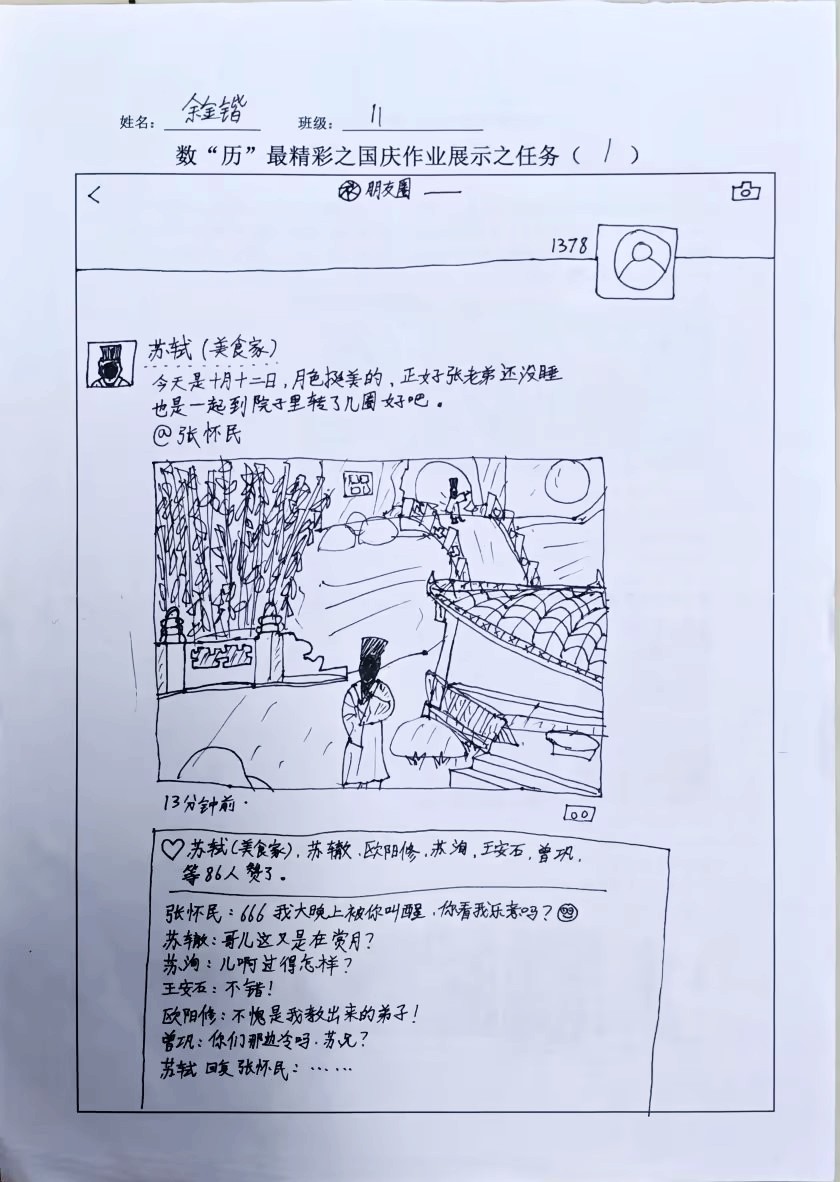 姓名：余金锴 班级：11
数“历”最精彩之国庆作业展示之任务（1）
朋友圈
1378
苏轼（美食家）
今天是十月十二日，月色挺美的，正好张老弟还没睡
也是一起到院子里转了几圈好吧。
@张怀民
13分钟前
苏轼（美食家），苏辙，欧阳修，苏洵，王安石，曾巩，
等86人赞了。
张怀民：666 我大晚上被你叫醒，你看我乐者吗？
苏辙：哥儿这又是在赏月？
苏洵：儿啊过得怎样？
王安石：不错！
欧阳修：不愧是我教出来的弟子！
曾巩：你们那边冷吗，苏兄？
苏轼 回复 张怀民：……